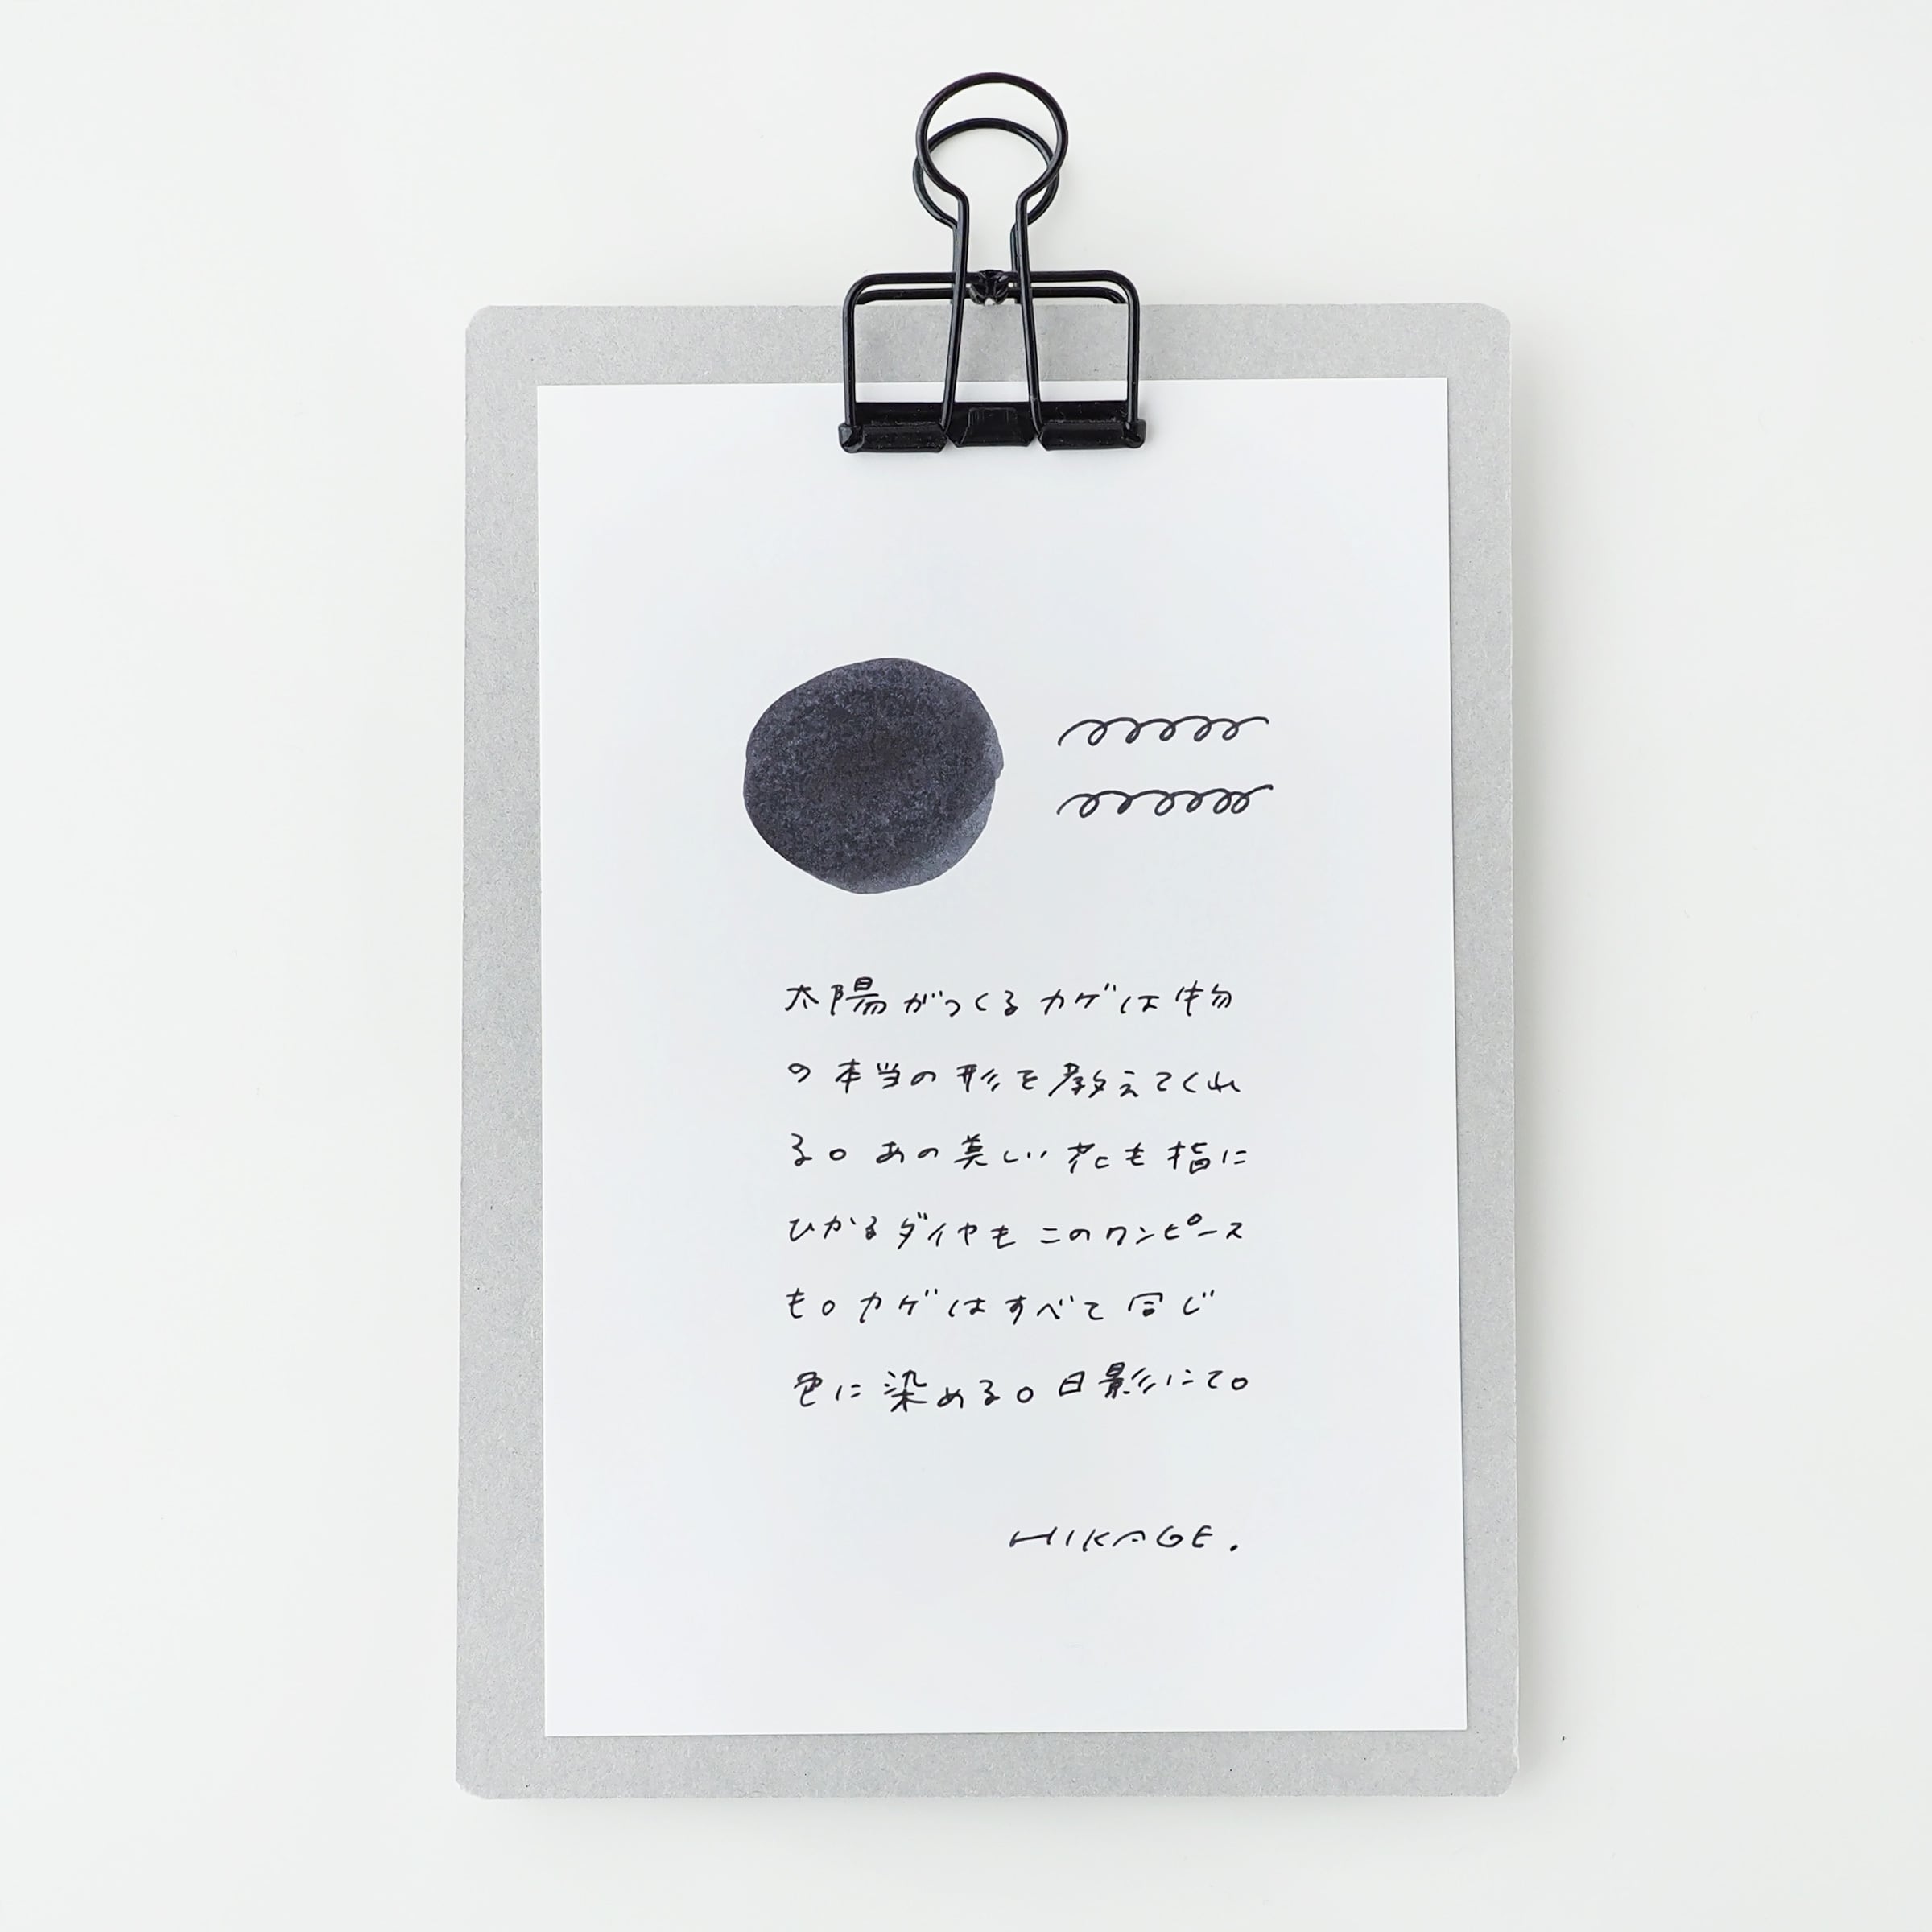 太陽がつくるカゲは物
の本当の形を教えてくれ
る。あの美しい花も指に
ひかるダイヤもこのワンピース
も。カゲはすべて同じ
色に染める。日影にて。
HIKAGE.